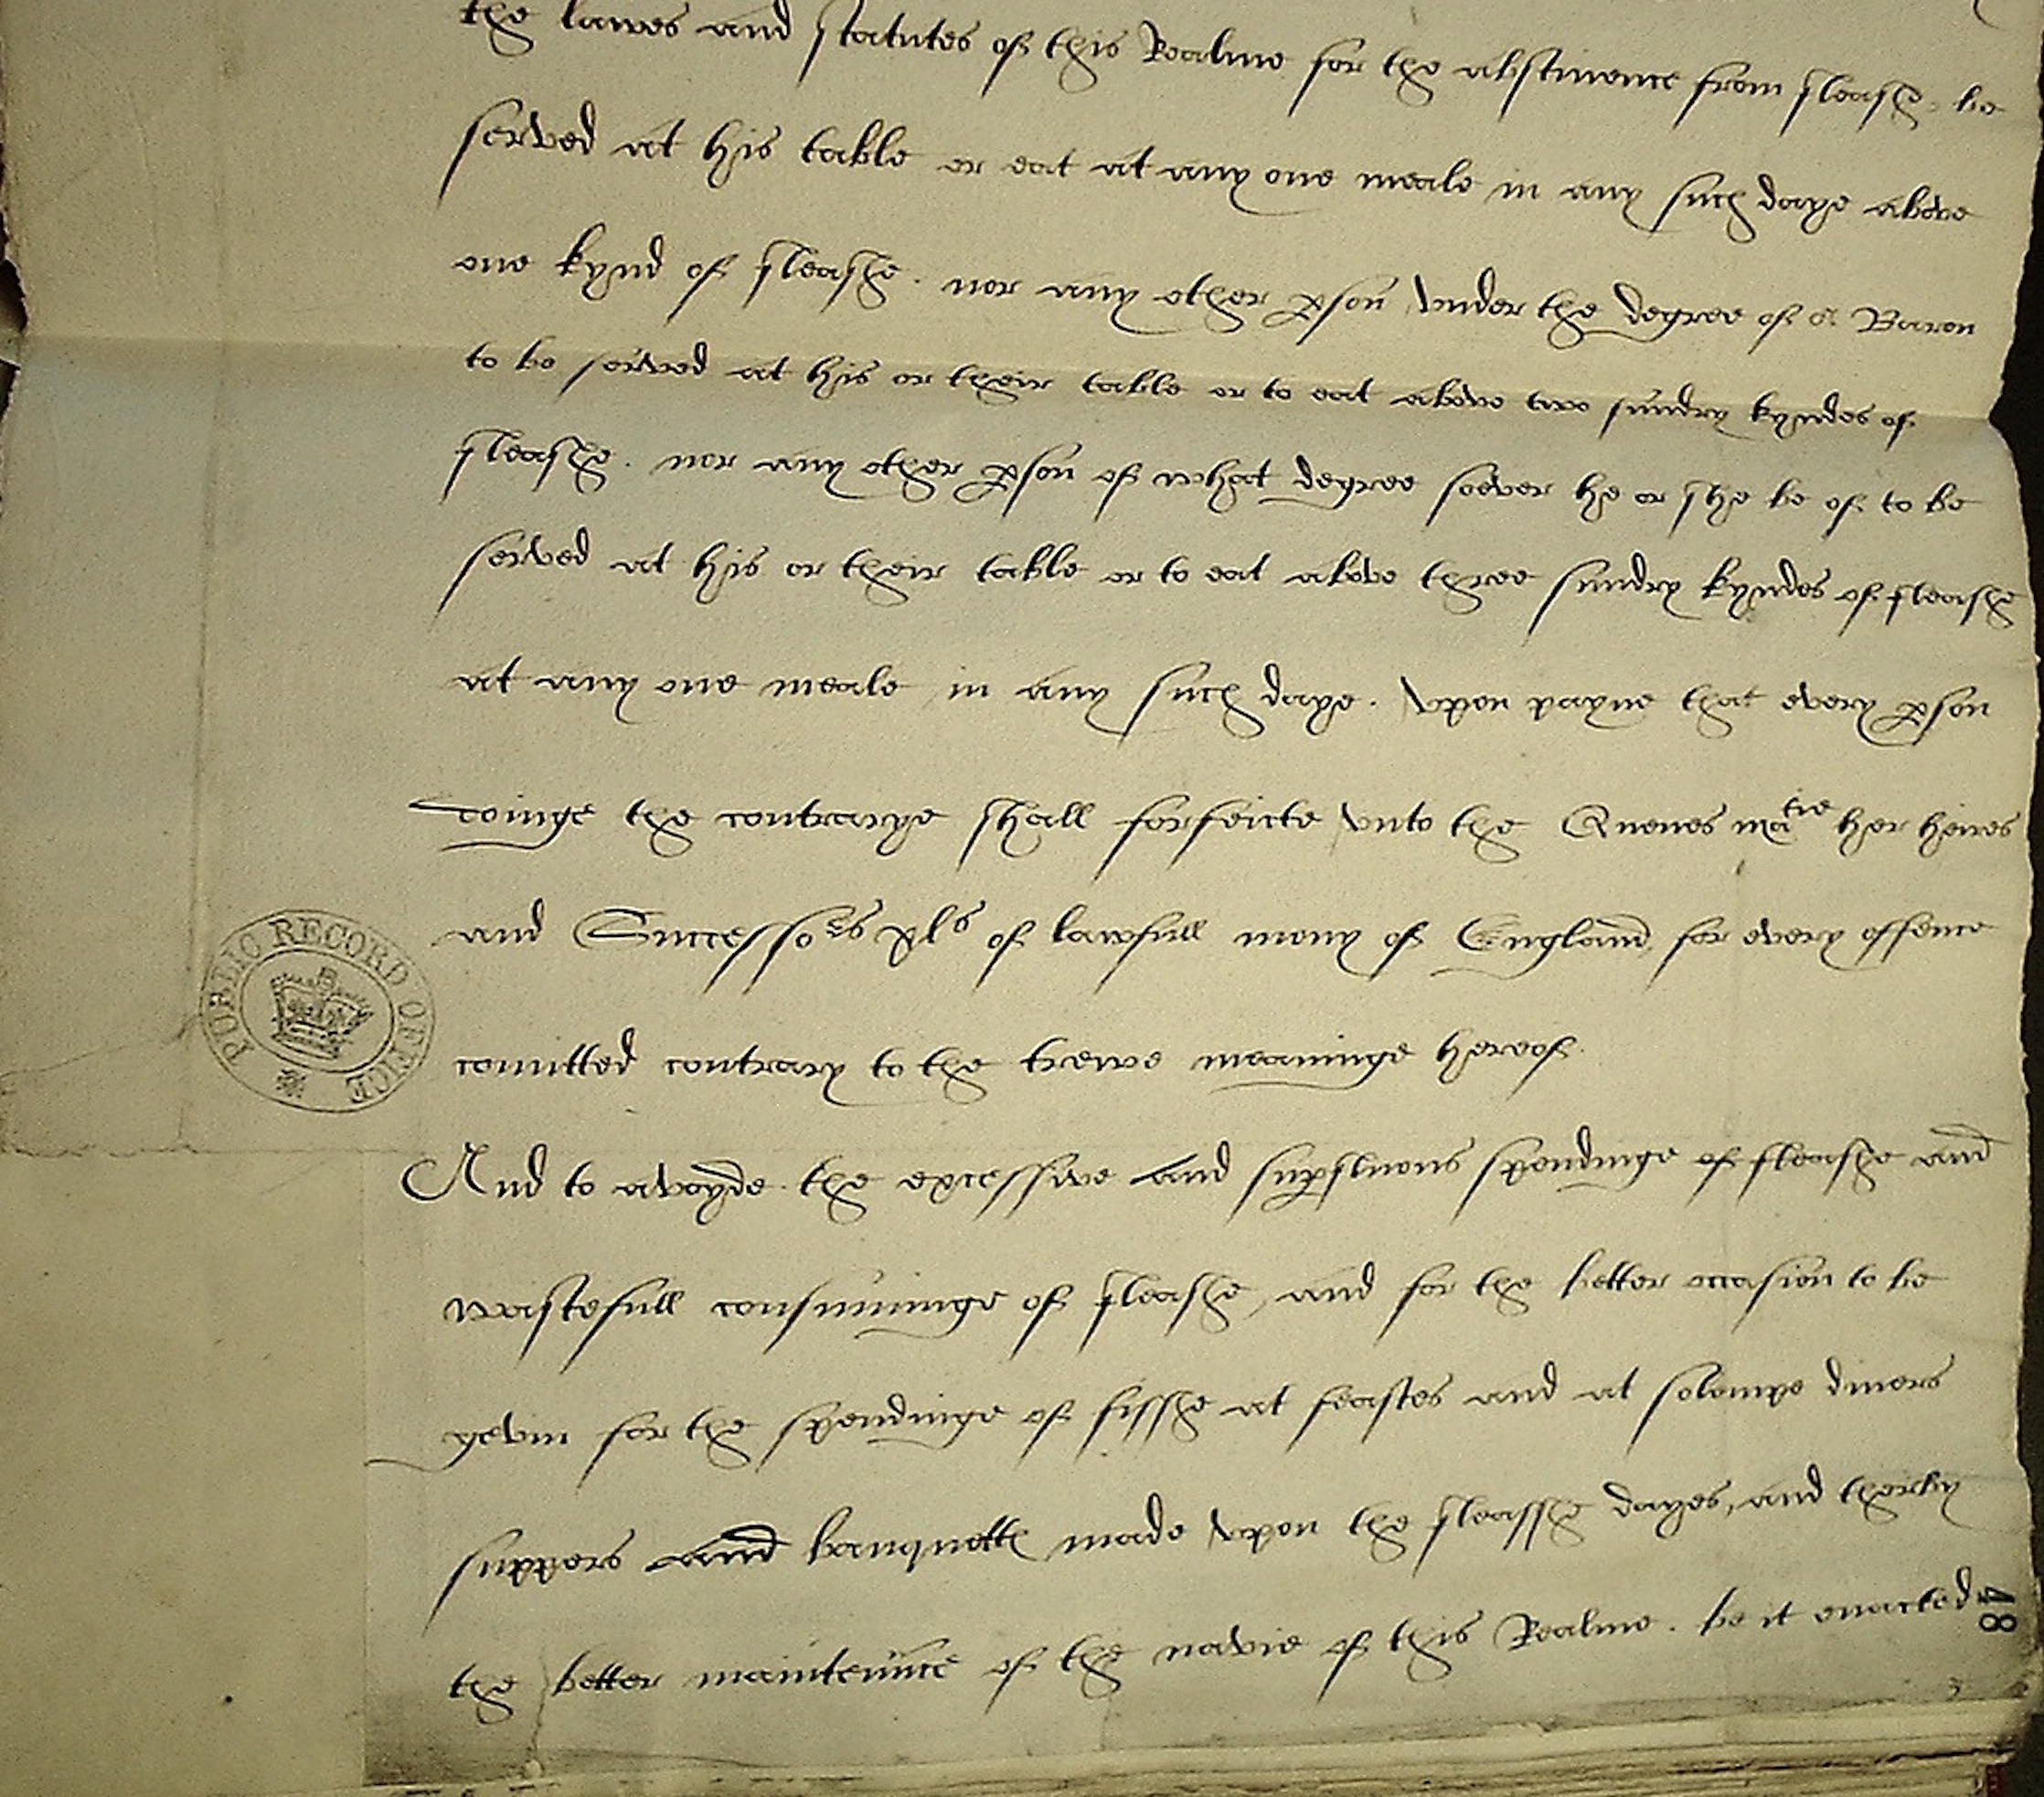 the lawes and statutes of this Realme for the abstinence from fleashe, be
served at his table or eat at any one meale in any such daye above
one kynd of fleashe. nor any other pson vnder the degree of a Baron
to be served at his or their table or to eat above two sundry kyndes of
fleashe. nor any other pson of what degree soever he or she be of to be
served at his or their table or to eat above three sundry kyndes of fleashe
at any one meale in any such daye. vpon payne that every pson
doinge the contrarye shall forfeicte vnto the Quenes matie her heires
and Successors xls of lawfull mony of England, for every offence
comitted contrary to the trewe meaninge hereof.
PUBLIC RECORD OFFICE
And to avoyde the excessive and supfluous spendinge of fleashe and
wastefull consuminge of fleashe, and for the better occasion to be
gevin for the spendinge of fisshe at feastes and at solempe diners
suppers and banquettes made vpon the fleasshe dayes, and therby
the better maintenance of the navie of this Realme. be it enacted
48